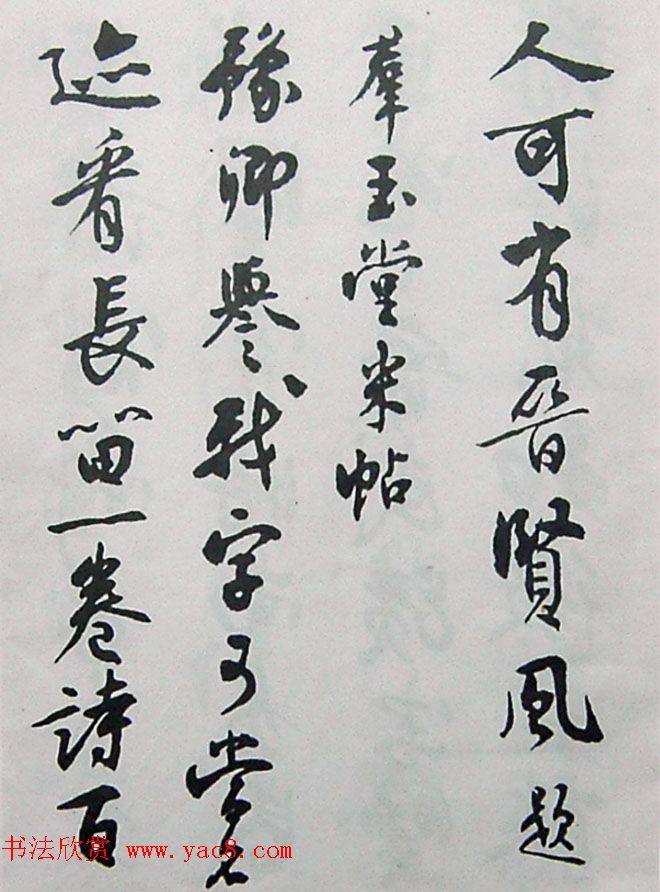 人可有晋賢風題
羣玉堂米帖
豫卿譽我字可當名
迹看長留一卷詩百
书法欣赏 www.yac8.com